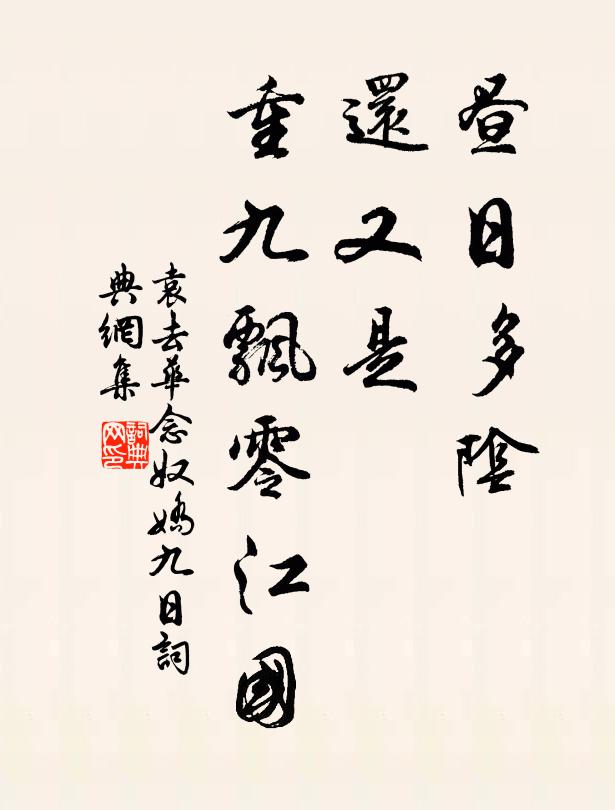 昼日多陰
還又是
重九飄零江國
袁去華念奴嬌九日詞
典網集
詞典网印